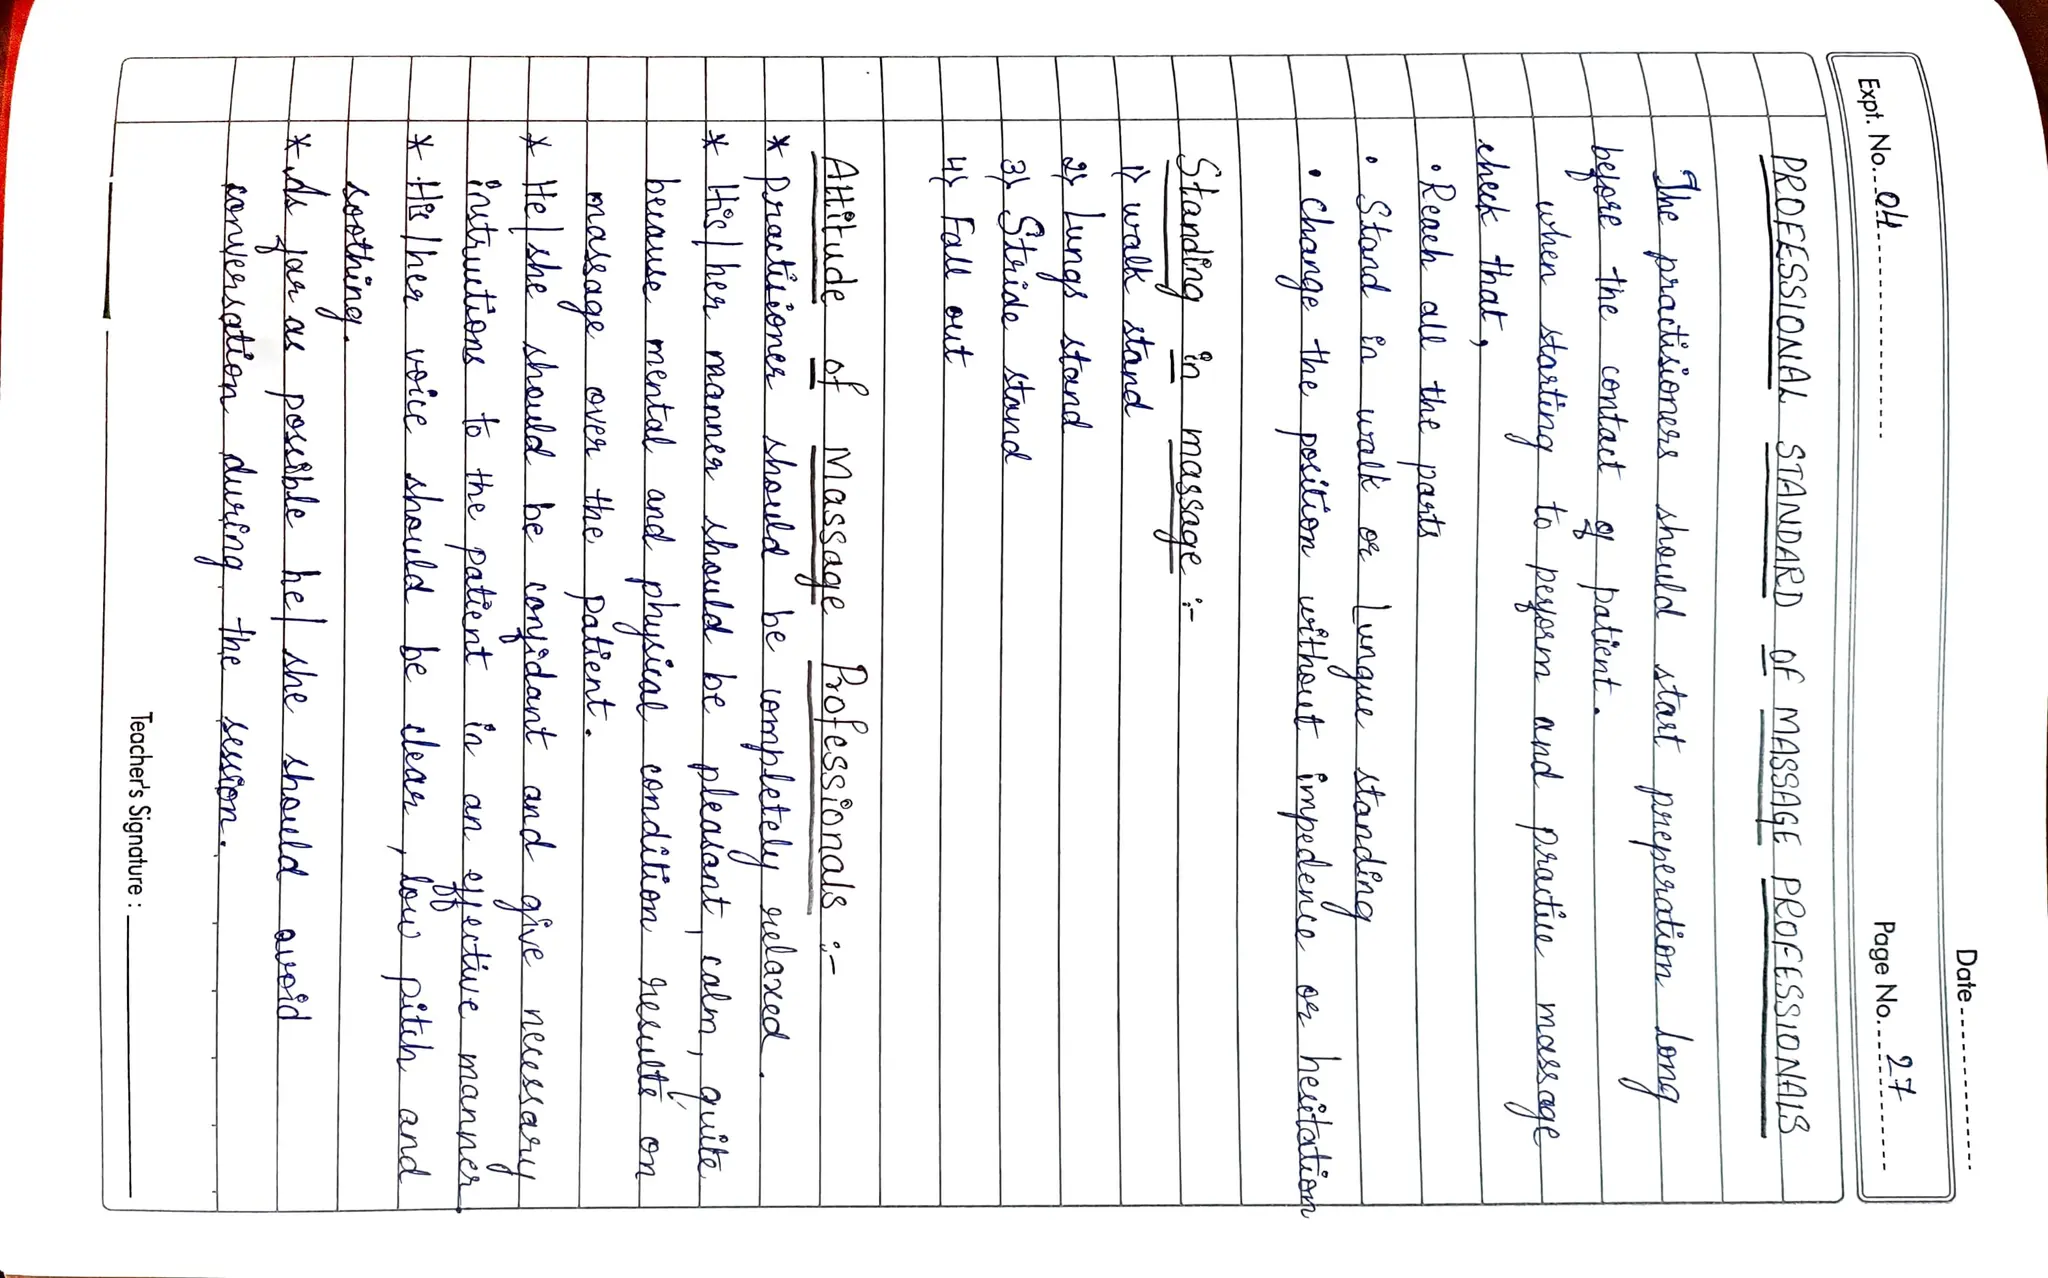 Date
Expt. No. 04
Page No. 27
PROFESSIONAL STANDARD OF MASSAGE PROFESSIONALS
The practisioners should start preperation long
before the contact of patient.
when starting to perform and practice massage
check that,
• Reach all the parts
• Stand in walk or Lungue standing
• change the position without impedence or hesitation
Standing in massage :-
1) walk stand
2) Lungs stand
3) Stride stand
4) Fall out
Attitude of Massage Professionals :-
* practisioner should be completely relaxed.
* His/her manner should be pleasant, calm, quite
because mental and physical condition results on
massage over the patient.
* He/she should be confidant and give necessary
instructions to the patient in an effective manner
* His/her voice should be clear, low pitch and
soothing.
* As far as possible he/she should avoid
conversation during the session.
Teacher's Signature :